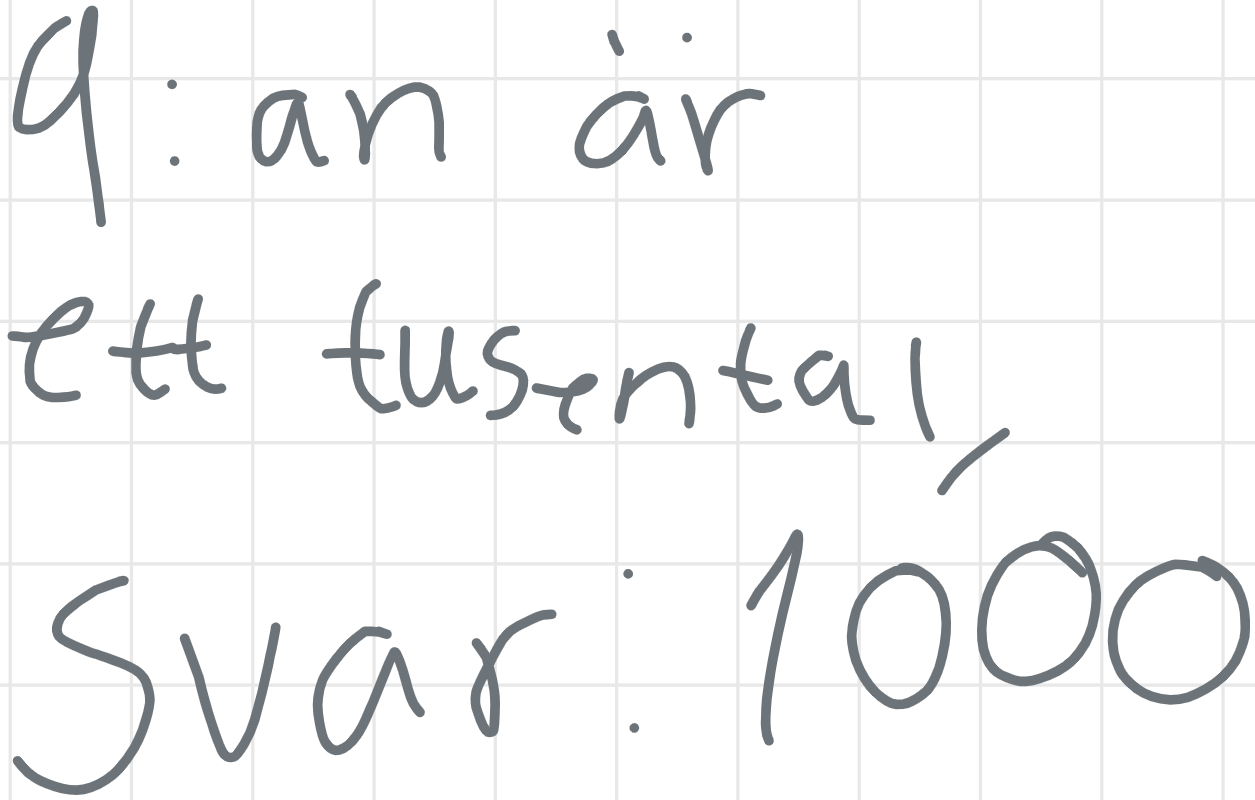 9:an är
ett tusental,
Svar: 1000